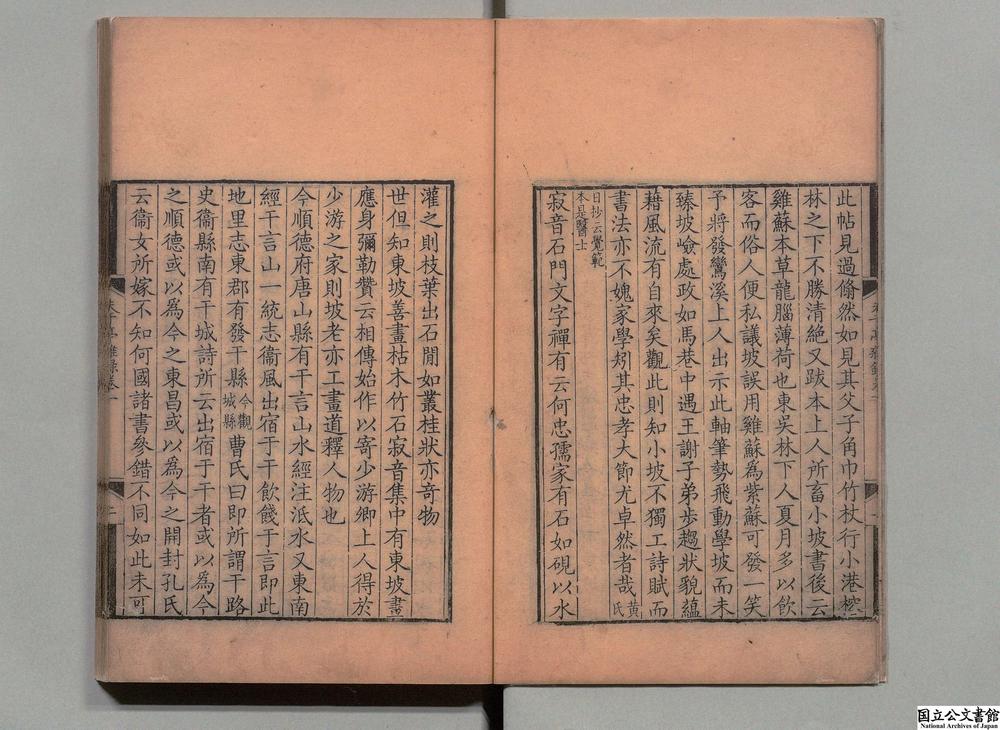 此帖見過翛然如見其父子角巾竹杖行小港椌
林之下不勝清絶又跋本上人所畜小坡書後云
雞蘇本草龍腦薄荷也東吳林下人夏月多以飲
客而俗人便私議坡誤用雞蘇為紫蘇可發一笑
予將發鸞溪上人出示此軸筆勢飛動學坡而未
臻坡嶮處政如馬巷中遇王謝子弟步趨狀貌蘊
藉風流有自來矣觀此則知小坡不獨工詩賦而
書法亦不媿家學矧其忠孝大節尤卓然者哉黃氏
日抄云覺範本是醫士
寂音石門文字禪有云何忠孺家有石如硯以水
灌之則枝葉出石間如叢桂狀亦奇物
世但知東坡善畫枯木竹石寂音集中有東坡畫
應身彌勒贊云相傳始作以寄少游卿上人得於
少游之家則坡老亦工畫道釋人物也
今順德府唐山縣有干言山水經注泜水又東南
經干言山一統志衞風出宿于干飲餞于言即此
地里志東郡有發干縣今觀城縣曹氏曰即所謂干路
史衞縣南有干城詩所云出宿于干者或以為今
之順德或以為今之東昌或以為今之開封孔氏
云衞女所嫁不知何國諸書參錯不同如此未可
二
国立公文書館
National Archives of Japan